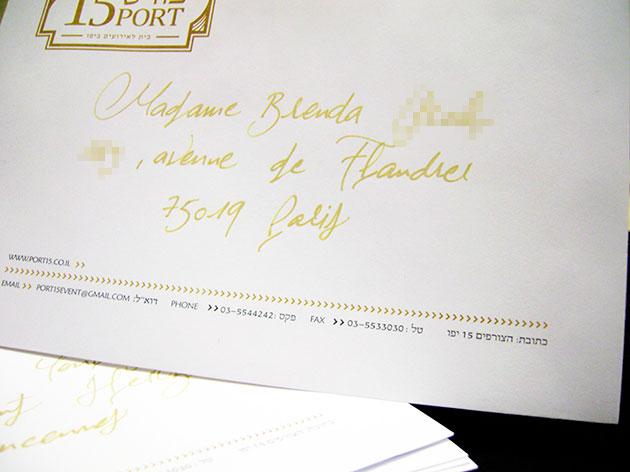 15PORT
בית לאירועים ביפו
Madame Brenda
, avenue de Flandres
75019 Paris
WWW.PORT15.CO.IL >>
EMAIL >> PORT15EVENT@GMAIL.COM דוא"ל: PHONE >> 03-5544242 פקס: FAX >> 03-5533030 טל: כתובת: הצורפים 15 יפו